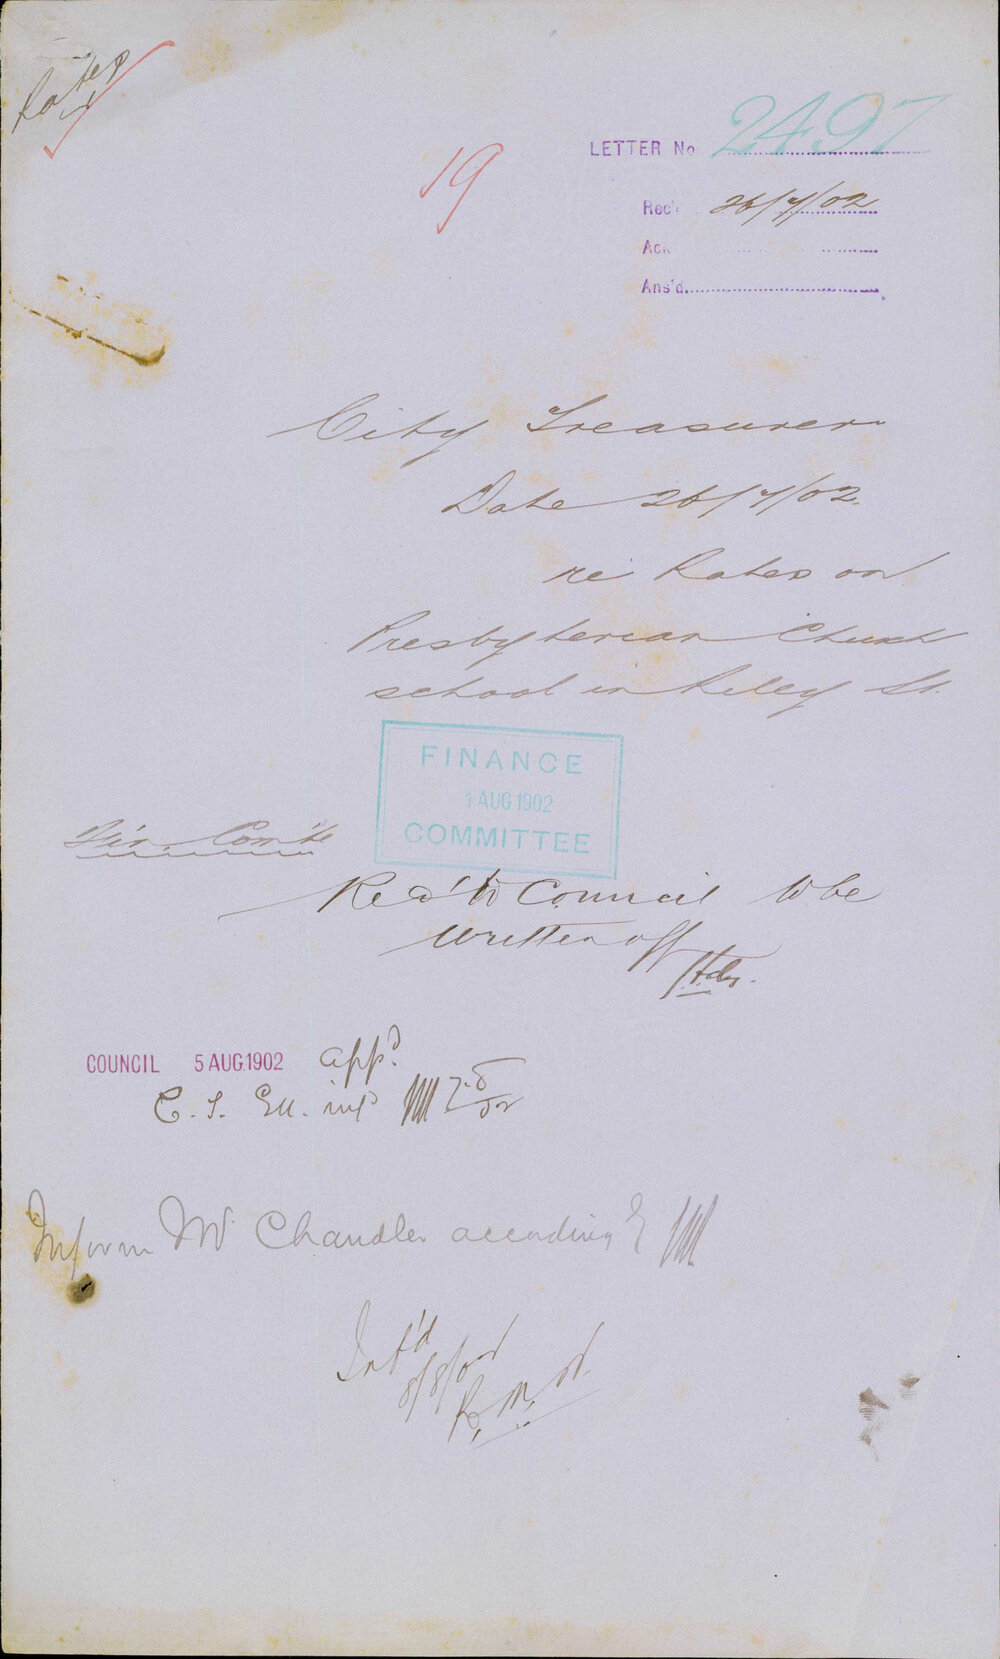 Rates
19
LETTER No 2497
Rec'd 26/7/02
Ack
Ans'd
City Treasurer
Date 26/7/02.
re Rates on
Presbyterian Church
school in Riley St.
FINANCE
1 AUG 1902
COMMITTEE
Fin. Com'te
Rec'd to Council to be
written off
COUNCIL 5 AUG. 1902 app'd
C. T.
Inform Mr Chandler accordingly
8/8/02
R.